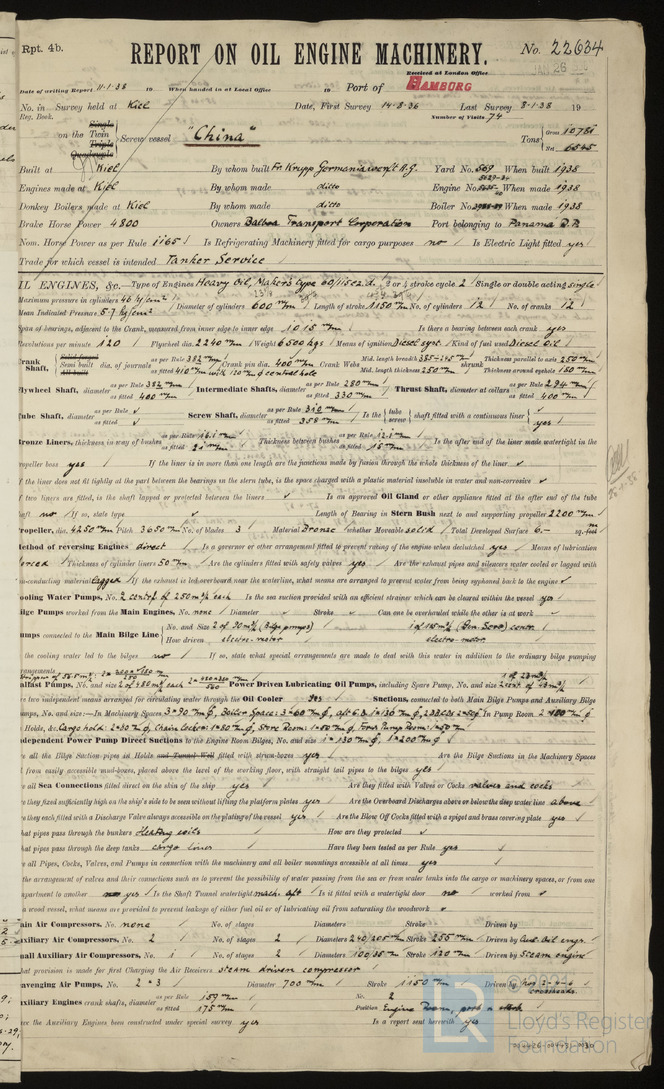 Rpt. 4b.
REPORT ON OIL ENGINE MACHINERY.
No. 22634
JAN 26
Received at London Office
Date of writing Report 11-1-38 19 When handed in at Local Office 19 Port of HAMBURG
No. in Survey held at Kiel Date, First Survey 14-8-36 Last Survey 8-1-38 19
Reg. Book. Number of Visits 74
Single on the Twin Triple Quadruple Screw vessel "China" Tons Gross 10781 Net 6545
Built at Kiel By whom built Fr. Krupp Germaniawerft A.G. Yard No. 569 When built 1938
Engines made at Kiel By whom made ditto Engine No. When made 1938
Donkey Boilers made at Kiel By whom made ditto Boiler No. When made 1938
Brake Horse Power 4800 Owners Balboa Transport Corporation Port belonging to Panama R.P.
Nom. Horse Power as per Rule 1165 Is Refrigerating Machinery fitted for cargo purposes no Is Electric Light fitted yes
Trade for which vessel is intended Tanker Service
IL ENGINES, &c.—Type of Engines Heavy Oil, Maker's type 2 or 4 stroke cycle 2 Single or double acting single
Maximum pressure in cylinders 46 kg/cm² Diameter of cylinders 600 m/m Length of stroke 1150 m/m No. of cylinders 12 No. of cranks 12
Mean Indicated Pressure 5.7 kg/cm²
Span of bearings, adjacent to the Crank, measured from inner edge to inner edge 1015 m/m Is there a bearing between each crank yes
Revolutions per minute 120 Flywheel dia. 2240 m/m Weight 6500 kgs Means of ignition Diesel syst. Kind of fuel used Diesel Oil
Crank Shaft, Solid forged Semi built All built dia. of journals as per Rule 382 m/m as fitted 410 m/m with 120 m/m central hole Crank pin dia. 400 m/m Crank Webs Mid. length breadth Mid. length thickness 250 m/m shrunk Thickness parallel to axis 250 m/m Thickness around eyehole 180 m/m
Flywheel Shaft, diameter as per Rule 382 m/m as fitted 400 m/m Intermediate Shafts, diameter as per Rule 280 m/m as fitted 330 m/m Thrust Shaft, diameter at collars as per Rule 294 m/m as fitted 400 m/m
Tube Shaft, diameter as per Rule as fitted Screw Shaft, diameter as per Rule 310 m/m as fitted 358 m/m Is the tube screw shaft fitted with a continuous liner yes
Bronze Liners, thickness in way of bushes as per Rule 16.1 m/m as fitted 21 m/m Thickness between bushes as per Rule 12.1 m/m as fitted 18 m/m Is the after end of the liner made watertight in the
propeller boss yes If the liner is in more than one length are the junctions made by fusion through the whole thickness of the liner
If the liner does not fit tightly at the part between the bearings in the stern tube, is the space charged with a plastic material insoluble in water and non-corrosive
If two liners are fitted, is the shaft lapped or protected between the liners Is an approved Oil Gland or other appliance fitted at the after end of the tube
shaft no If so, state type Length of Bearing in Stern Bush next to and supporting propeller 2200 m/m
Propeller, dia. 4250 m/m Pitch 3650 m/m No. of blades 3 Material Bronze whether Moveable solid Total Developed Surface 6.- sq. feet
Method of reversing Engines direct Is a governor or other arrangement fitted to prevent racing of the engine when declutched yes Means of lubrication
forced Thickness of cylinder liners 50 m/m Are the cylinders fitted with safety valves yes Are the exhaust pipes and silencers water cooled or lagged with
non-conducting material lagged If the exhaust is led overboard near the waterline, what means are arranged to prevent water from being syphoned back to the engine
Cooling Water Pumps, No. 2 centrf. of 250 m³/h each Is the sea suction provided with an efficient strainer which can be cleared within the vessel yes
Bilge Pumps worked from the Main Engines, No. none Diameter Stroke Can one be overhauled while the other is at work
Pumps connected to the Main Bilge Line No. and Size 2 of 90 m³/h (Bilge pumps) 1 of 115 m³/h (Gen. Serv.) centr. How driven electro-motor electro-motor
Is the cooling water led to the bilges no If so, state what special arrangements are made to deal with this water in addition to the ordinary bilge pumping
arrangements
Ballast Pumps, No. and size 2 of 450 m³/h each Power Driven Lubricating Oil Pumps, including Spare Pump, No. and size 1 of 23 m³/h 2 cent. of 43 m³/h
Are two independent means arranged for circulating water through the Oil Cooler yes Suctions, connected to both Main Bilge Pumps and Auxiliary Bilge
Pumps, No. and size:—In Machinery Spaces 3=90 m/m ø, Boiler Space: 3=60 m/m ø, In Pump Room
Holds, &c. Cargo hold: 2=90 m/m ø, Chain locker: 1=50 m/m ø, Store Room: 1=50 m/m ø, Ford. Pump Room: 1=50 m/m
Independent Power Pump Direct Suctions to the Engine Room Bilges, No. and size 1=130 m/m ø, 1=200 m/m ø
Are all the Bilge Suction pipes in Holds and Tunnel Well fitted with strum-boxes yes Are the Bilge Suctions in the Machinery Spaces
led from easily accessible mud-boxes, placed above the level of the working floor, with straight tail pipes to the bilges yes
Are all Sea Connections fitted direct on the skin of the ship yes Are they fitted with Valves or Cocks valves and cocks
Are they fixed sufficiently high on the ship's side to be seen without lifting the platform plates yes Are the Overboard Discharges above or below the deep water line above
Are they each fitted with a Discharge Valve always accessible on the plating of the vessel yes Are the Blow Off Cocks fitted with a spigot and brass covering plate yes
What pipes pass through the bunkers Heating coils How are they protected
What pipes pass through the deep tanks cargo lines Have they been tested as per Rule yes
Are all Pipes, Cocks, Valves, and Pumps in connection with the machinery and all boiler mountings accessible at all times yes
Is the arrangement of valves and their connections such as to prevent the possibility of water passing from the sea or from water tanks into the cargo or machinery spaces, or from one
compartment to another yes Is the Shaft Tunnel watertight mach. aft Is it fitted with a watertight door no worked from
If a wood vessel, what means are provided to prevent leakage of either fuel oil or of lubricating oil from saturating the woodwork
Main Air Compressors, No. none No. of stages Diameters Stroke Driven by
Auxiliary Air Compressors, No. 2 No. of stages 2 Diameters 240/205 m/m Stroke 255 m/m Driven by Aux. Oil engs.
Small Auxiliary Air Compressors, No. 1 No. of stages 2 Diameters 100/35 m/m Stroke 120 m/m Driven by Steam engine
What provision is made for first Charging the Air Receivers steam driven compressor
Scavenging Air Pumps, No. 2 = 3 Diameter 700 m/m Stroke 1150 m/m Driven by crossheads.
Auxiliary Engines crank shafts, diameter as per Rule 159 m/m as fitted 175 m/m No. 2 Position Engine Room, port
Have the Auxiliary Engines been constructed under special survey yes Is a report sent herewith yes
© 2021
LR
Lloyd's Register
Foundation